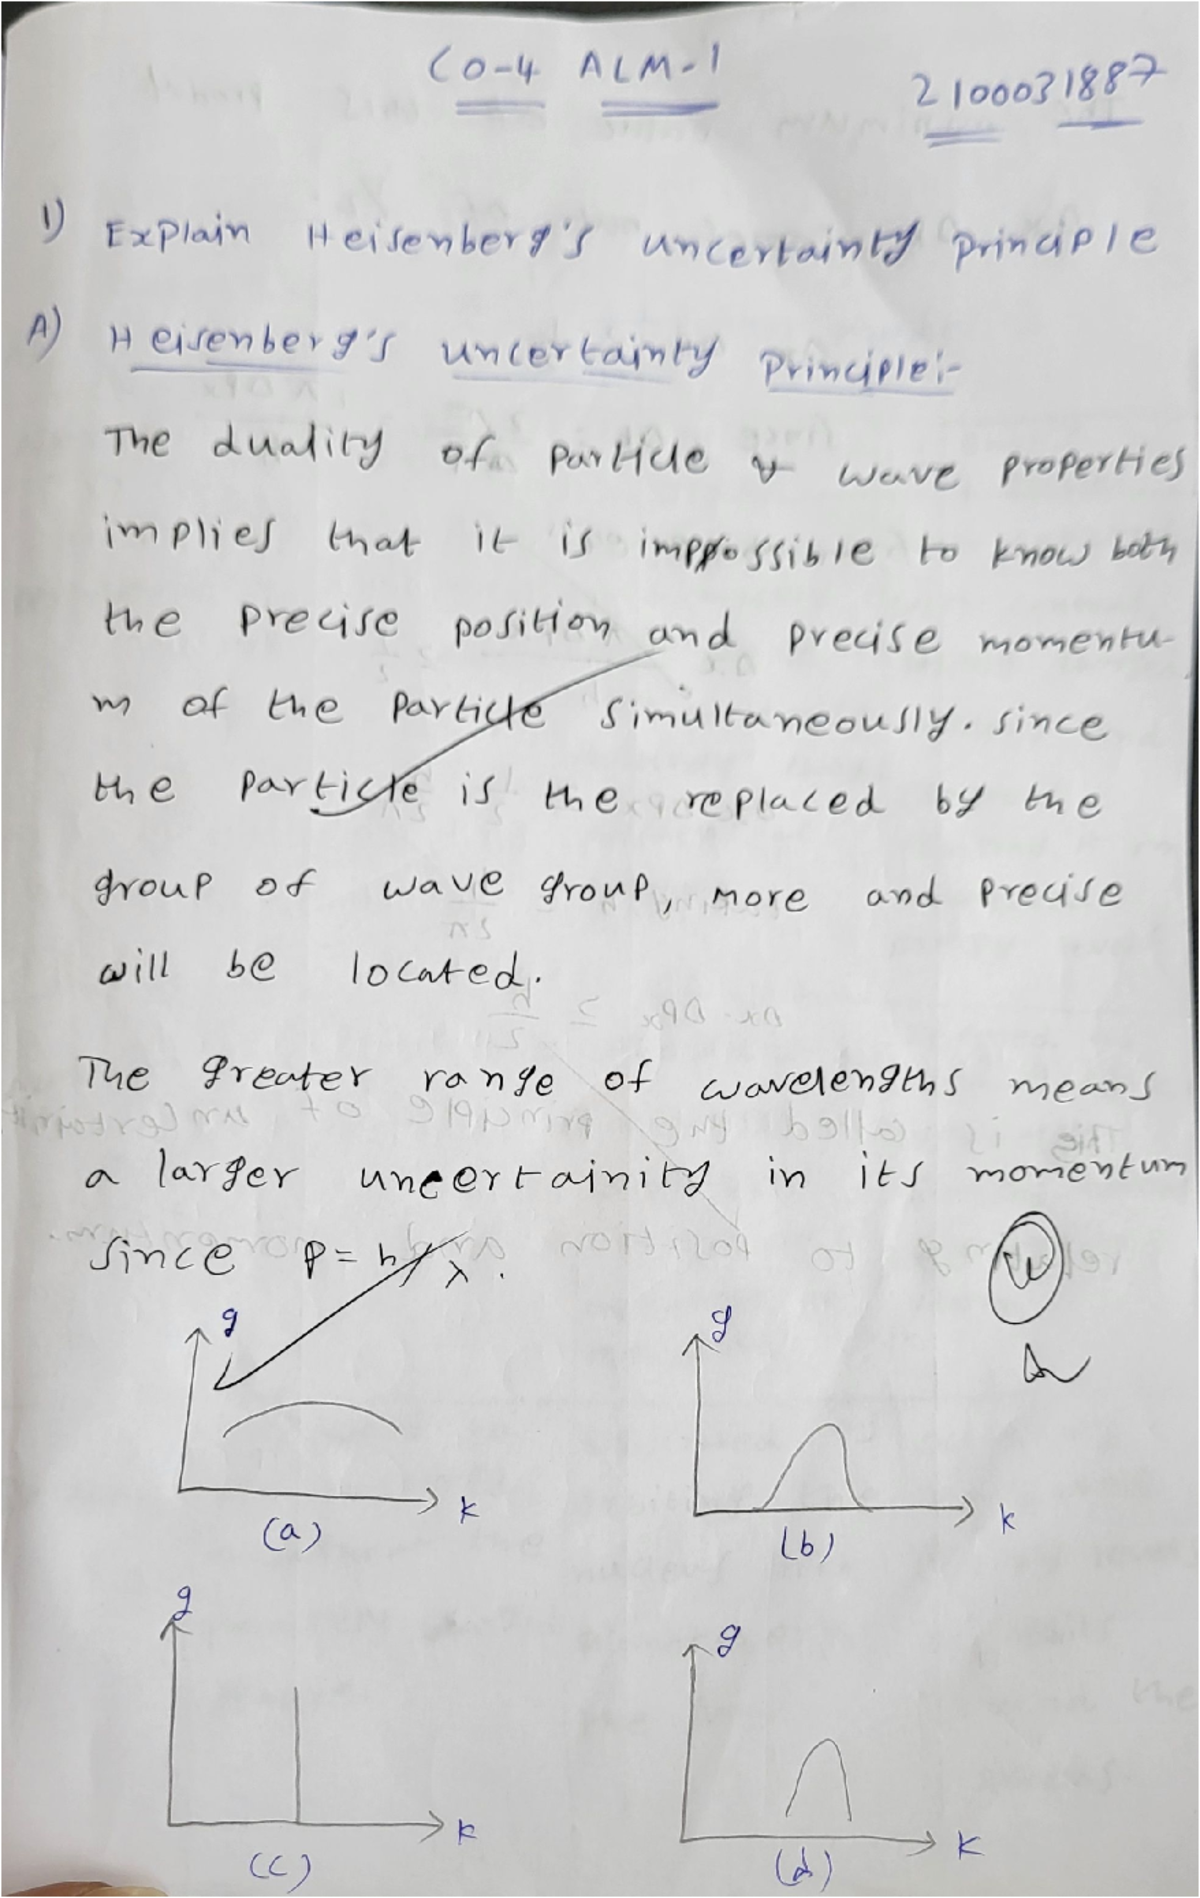 CO-4 ALM-1
2100031887
1) Explain Heisenberg's uncertainty principle
A) Heisenberg's uncertainty Principle:-
The duality of particle & wave properties
implies that it is imppossible to know both
the precise position and precise momentu-
m of the particle simultaneously. since
the particle is the replaced by the
group of wave group, more and precise
will be located.
The greater range of wavelengths means
a larger uncertainity in its momentum
since p = h/λ.
g
k
(a)
g
k
(b)
g
k
(c)
g
k
(d)